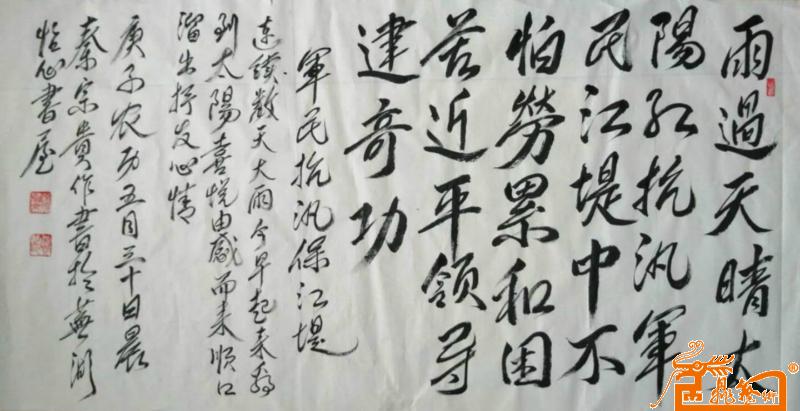 雨過天晴太
陽红抗汛軍
民江堤中不
怕勞累和困
苦近平領导
建奇功
軍民抗汛保江堤
连续数天大雨今早起来看
到太陽喜悦由感而来順口
溜出抒发心情
庚子农历五月三十日晨
秦宗貴作書於蕪湖
怡心書屋